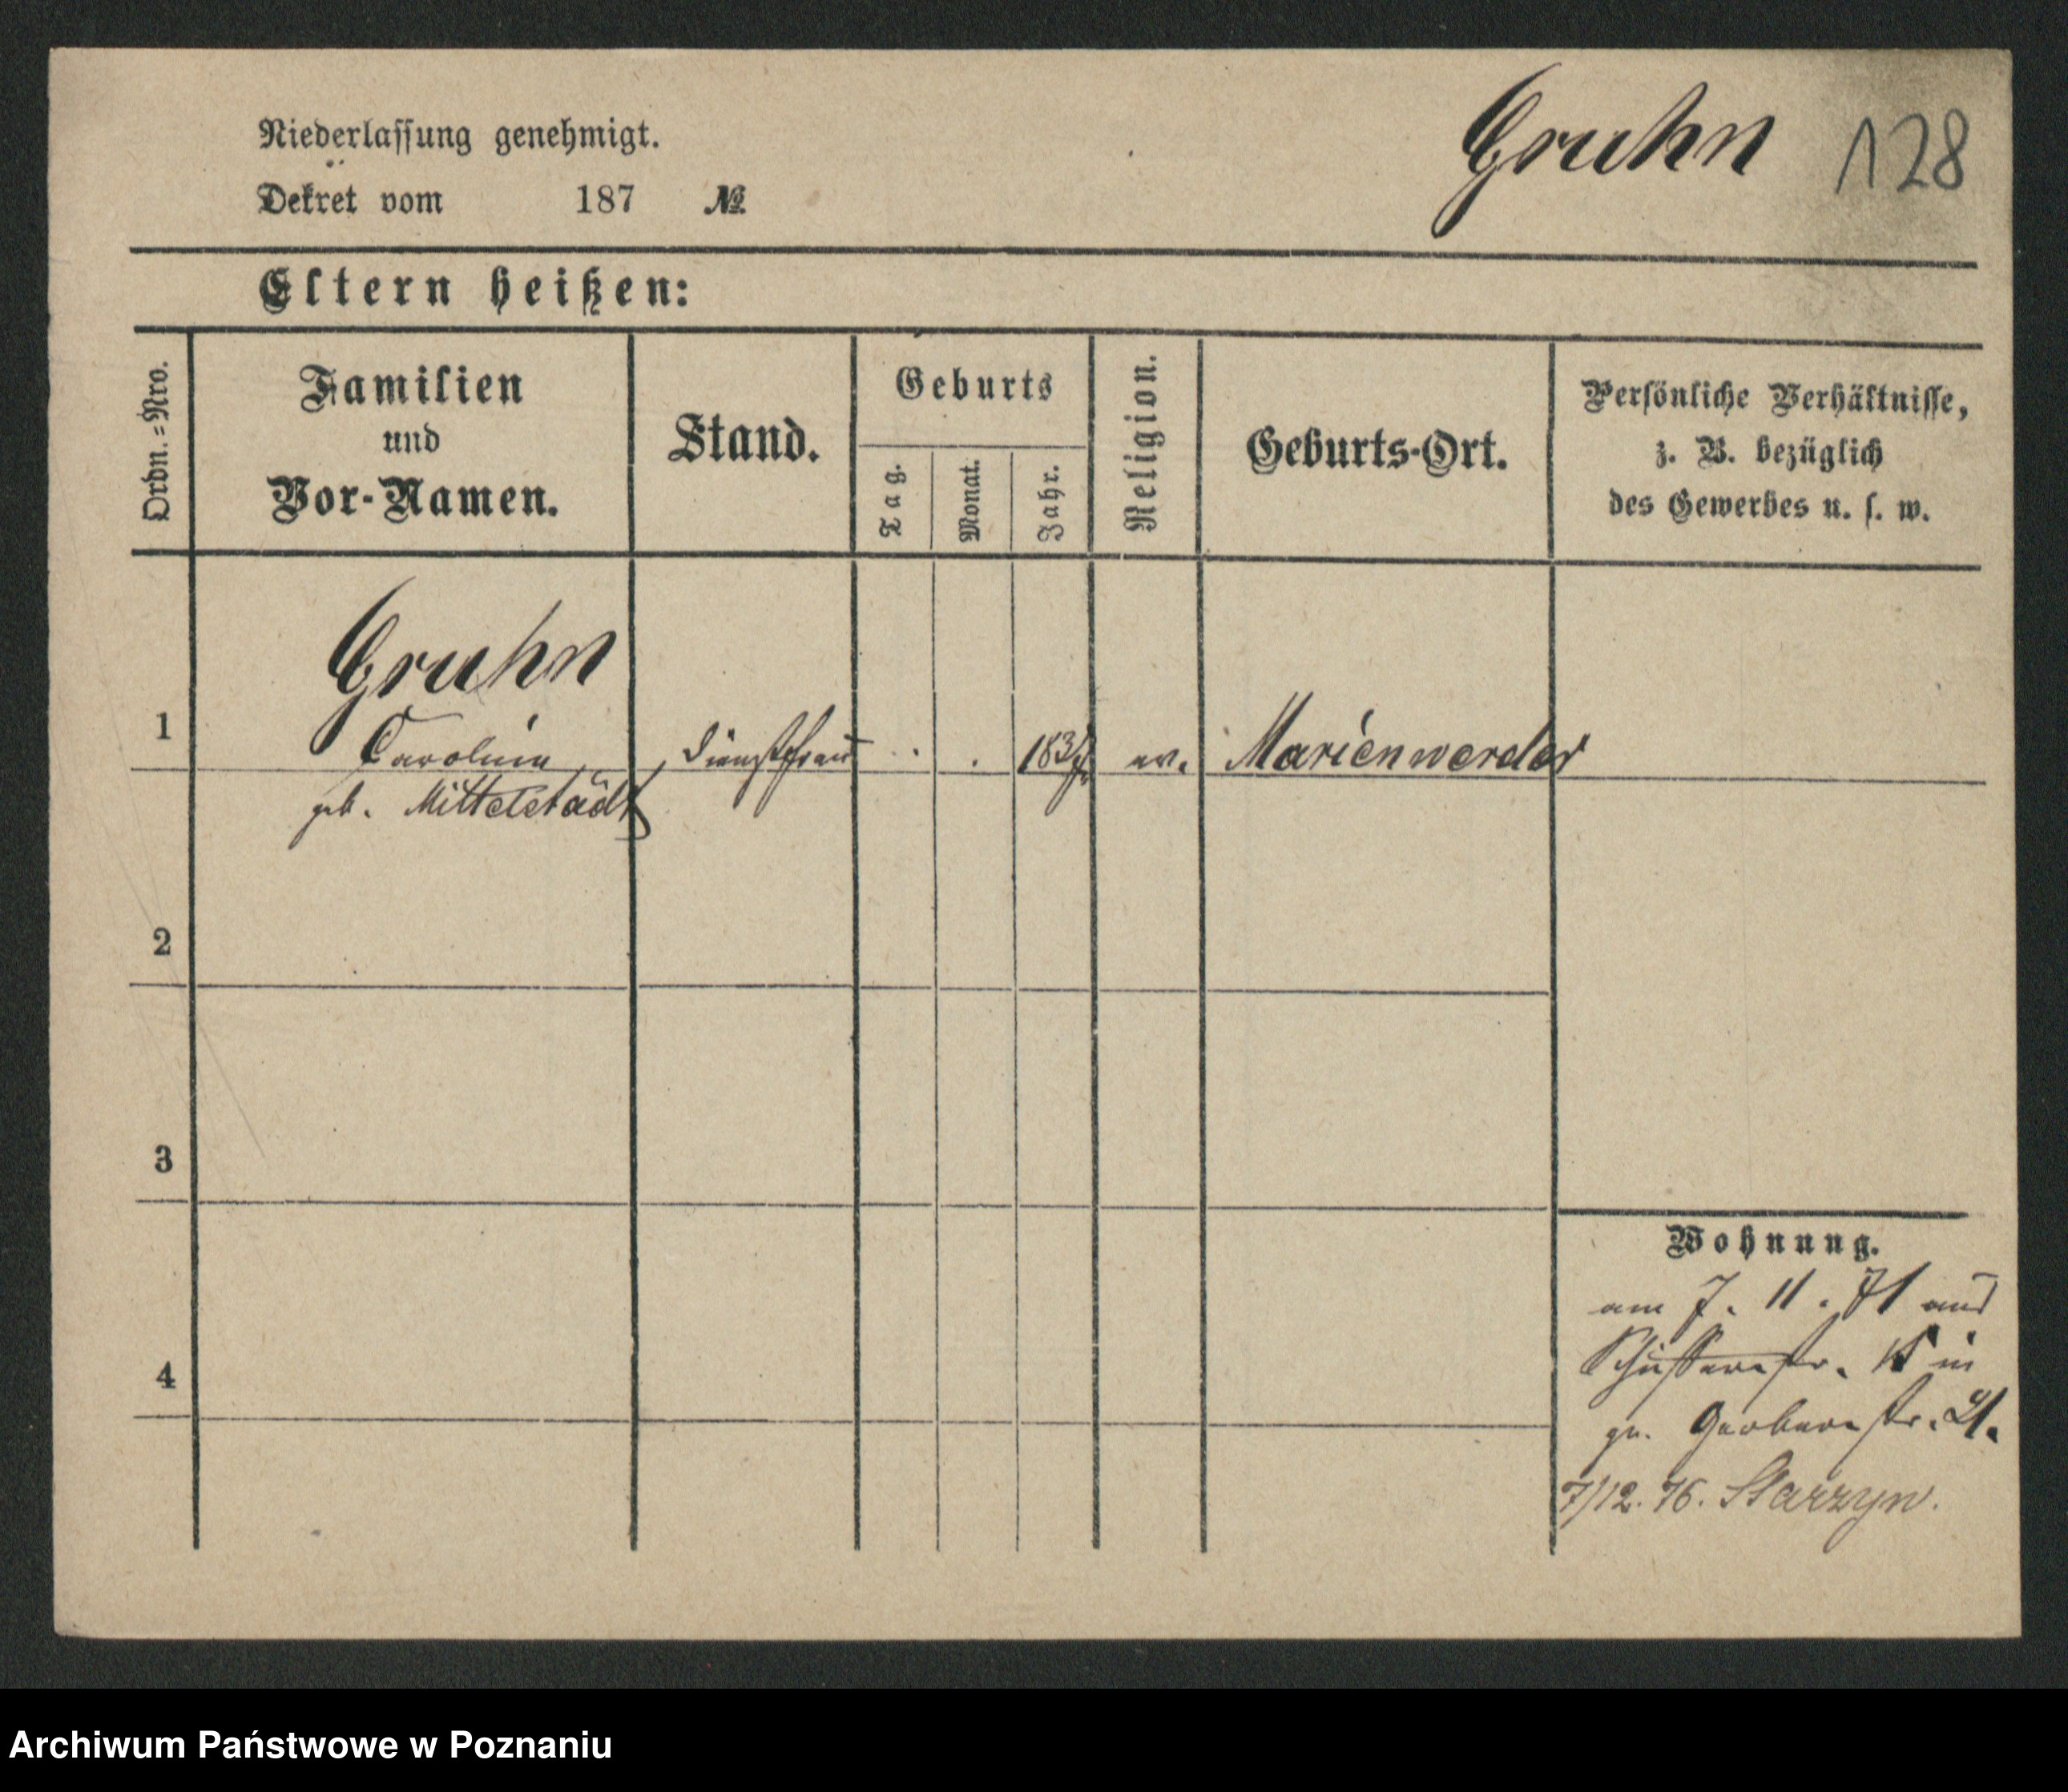 Niederlassung genehmigt.
Dekret vom 187 №
Gruhn 128
Eltern heißen:
Ordn.=Nro.
Familien
und
Vor-Namen.
Stand.
Geburts
Tag.
Monat.
Jahr.
Religion.
Geburts-Ort.
Persönliche Verhältnisse,
z. B. bezüglich
des Gewerbes u. s. w.
1
Gruhn
Carolina
geb. Mittelstädt
Dienstfrau
ev.
Marienwerder
2
3
4
Wohnung.
am 7. 11. 71 aus
in
gr. Gerberstr.
7/12. 76. Starzyn.
Archiwum Państwowe w Poznaniu